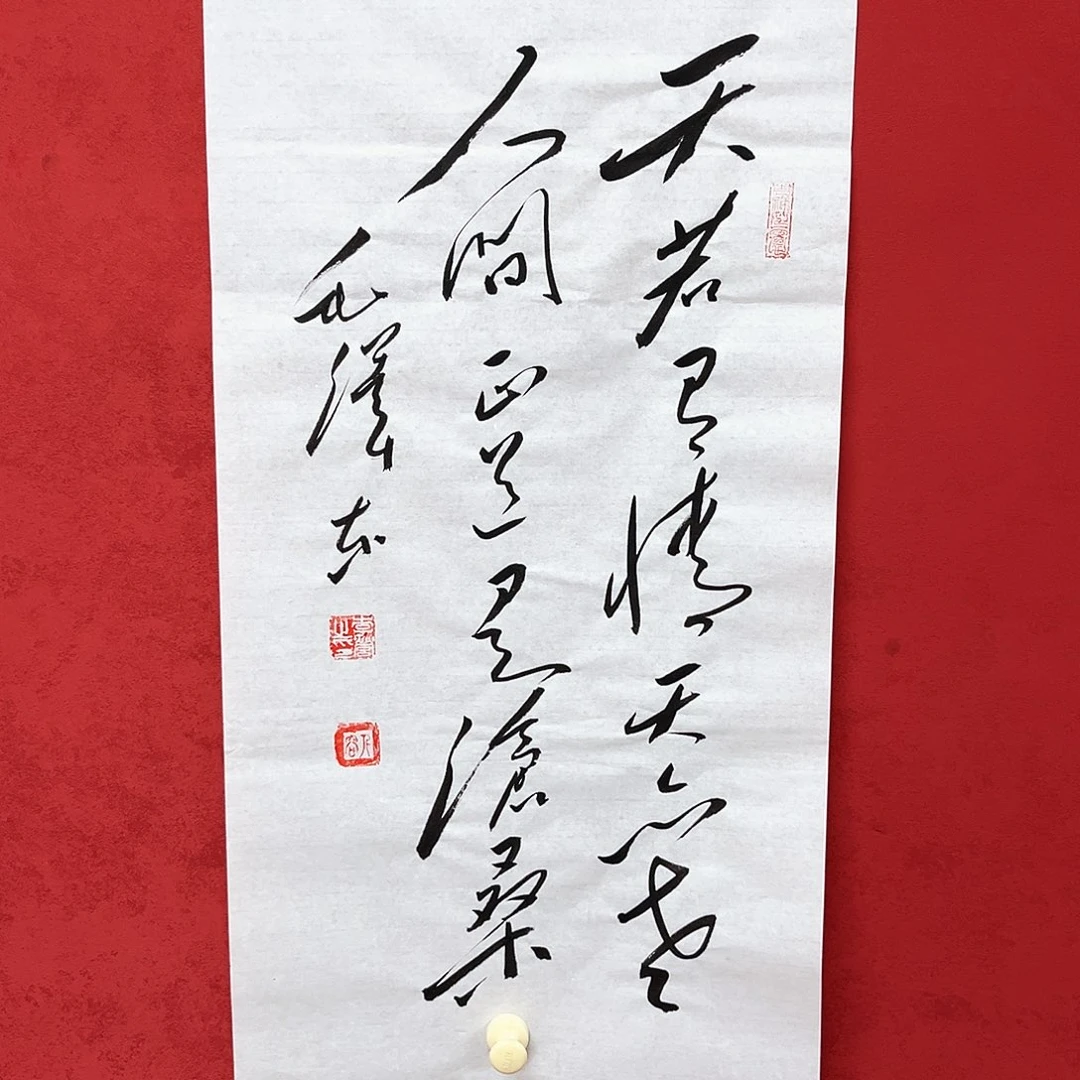 天若有情天亦老
人间正道是滄桑
毛澤东